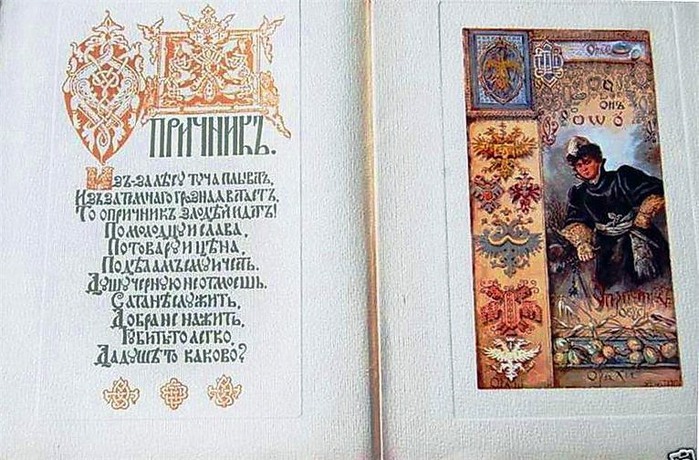 ОПРИЧНИКЪ.
Изъ-за лѣсу туча плыветъ,
Изъ за темнаго грозная встаетъ,
То опричник злодѣй идетъ!
По молодцу и слава,
По товару и цѣна,
По дѣламъ ему и честь.
Душу черную не отмоешь.
Сатанѣ служить,
Добра не нажить,
Губить то легко,
Да душѣ то каково?
онъ